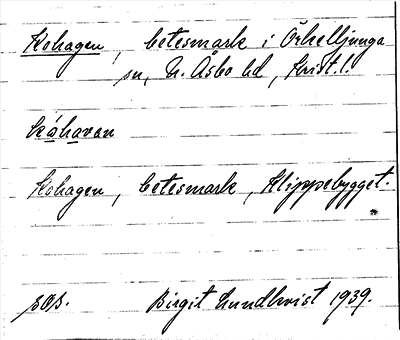 Kohagen, betesmark i Örkelljunga
sn, N. Åsbo hd, Krist. l.
kåhavan
Kohagen, betesmark, Klippebygget.
Birgit Lundkvist 1939.